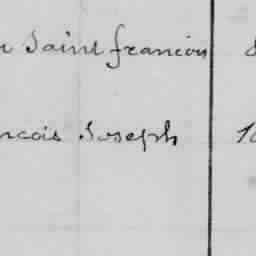 Saint francois
ncois Joseph